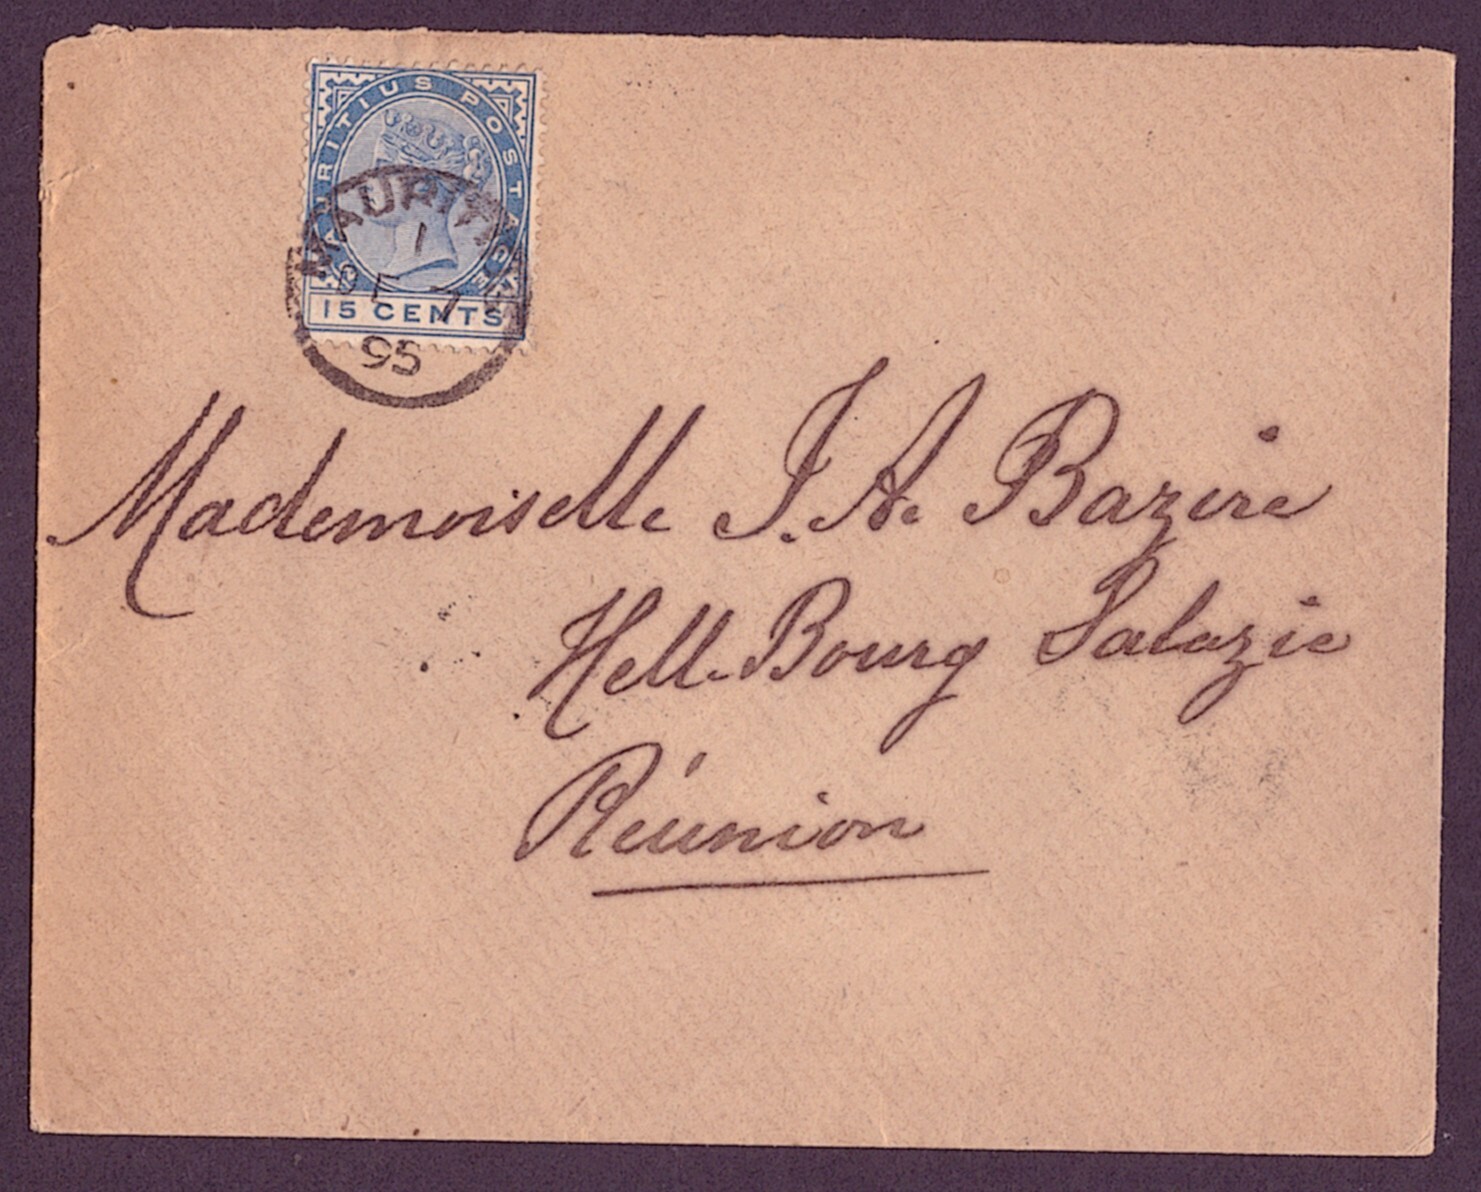 MAURITIUS POSTAGE
15 CENTS
MAURITI
1
DE 7
95
Mademoiselle J. A. Bazire
Hell-Bourg Salazie
Réunion